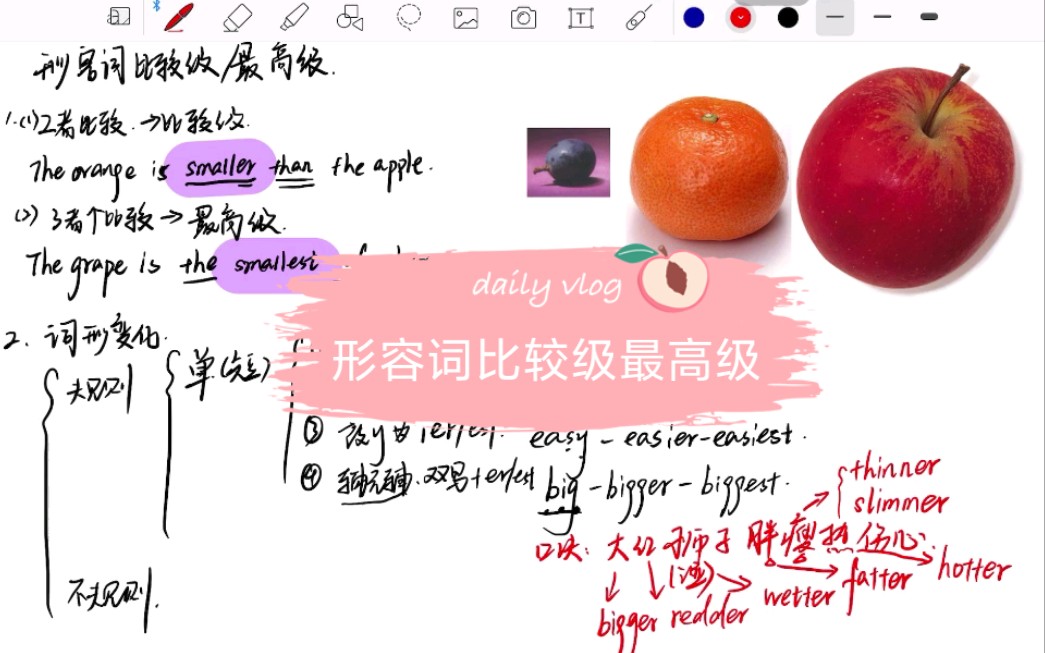 形容词比较级/最高级.
1.(1)2者比较.→比较级.
The orange is smaller than the apple.
(2) 3者个比较→最高级.
The grape is the smallest
daily vlog
形容词比较级最高级
2. 词形变化.
规则
单(短)
③ 改y为ier/iest. easy-easier-easiest.
④ 辅元辅.双写+er/est big-bigger-biggest.
thinner
slimmer
口诀: 大红狮子胖瘦热伤心.
(湿)
hotter
fatter
wetter
bigger redder
不规则.